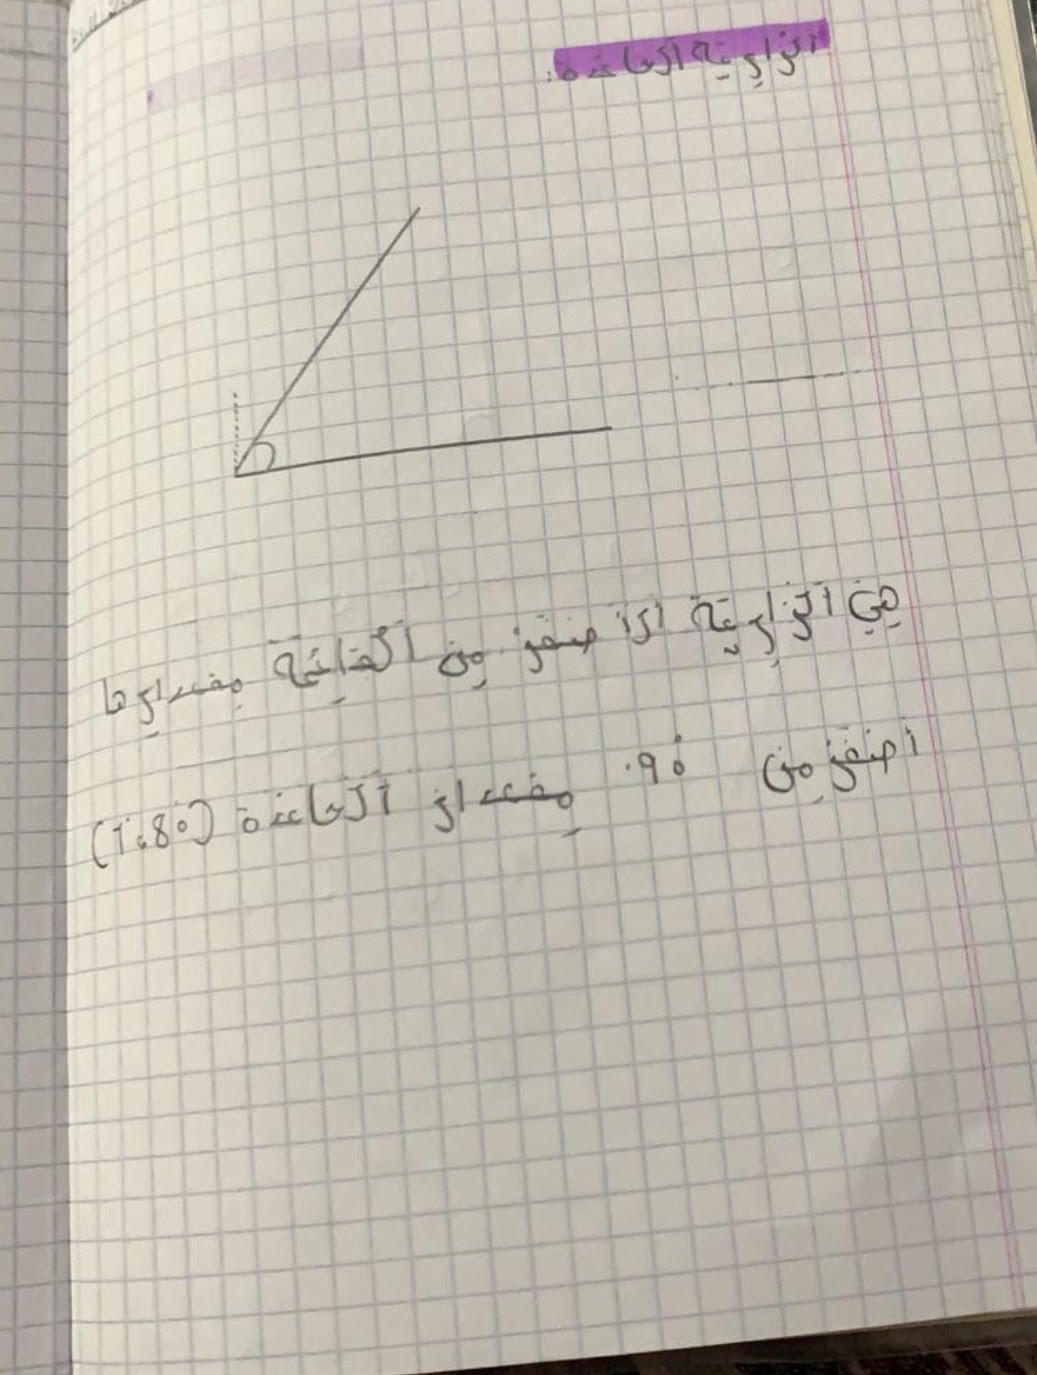 الزاوية الحادة:
هي الزاوية الأصغر من القائمة مقدارها
أصغر من 90° مقدار الحادة (1،80°)